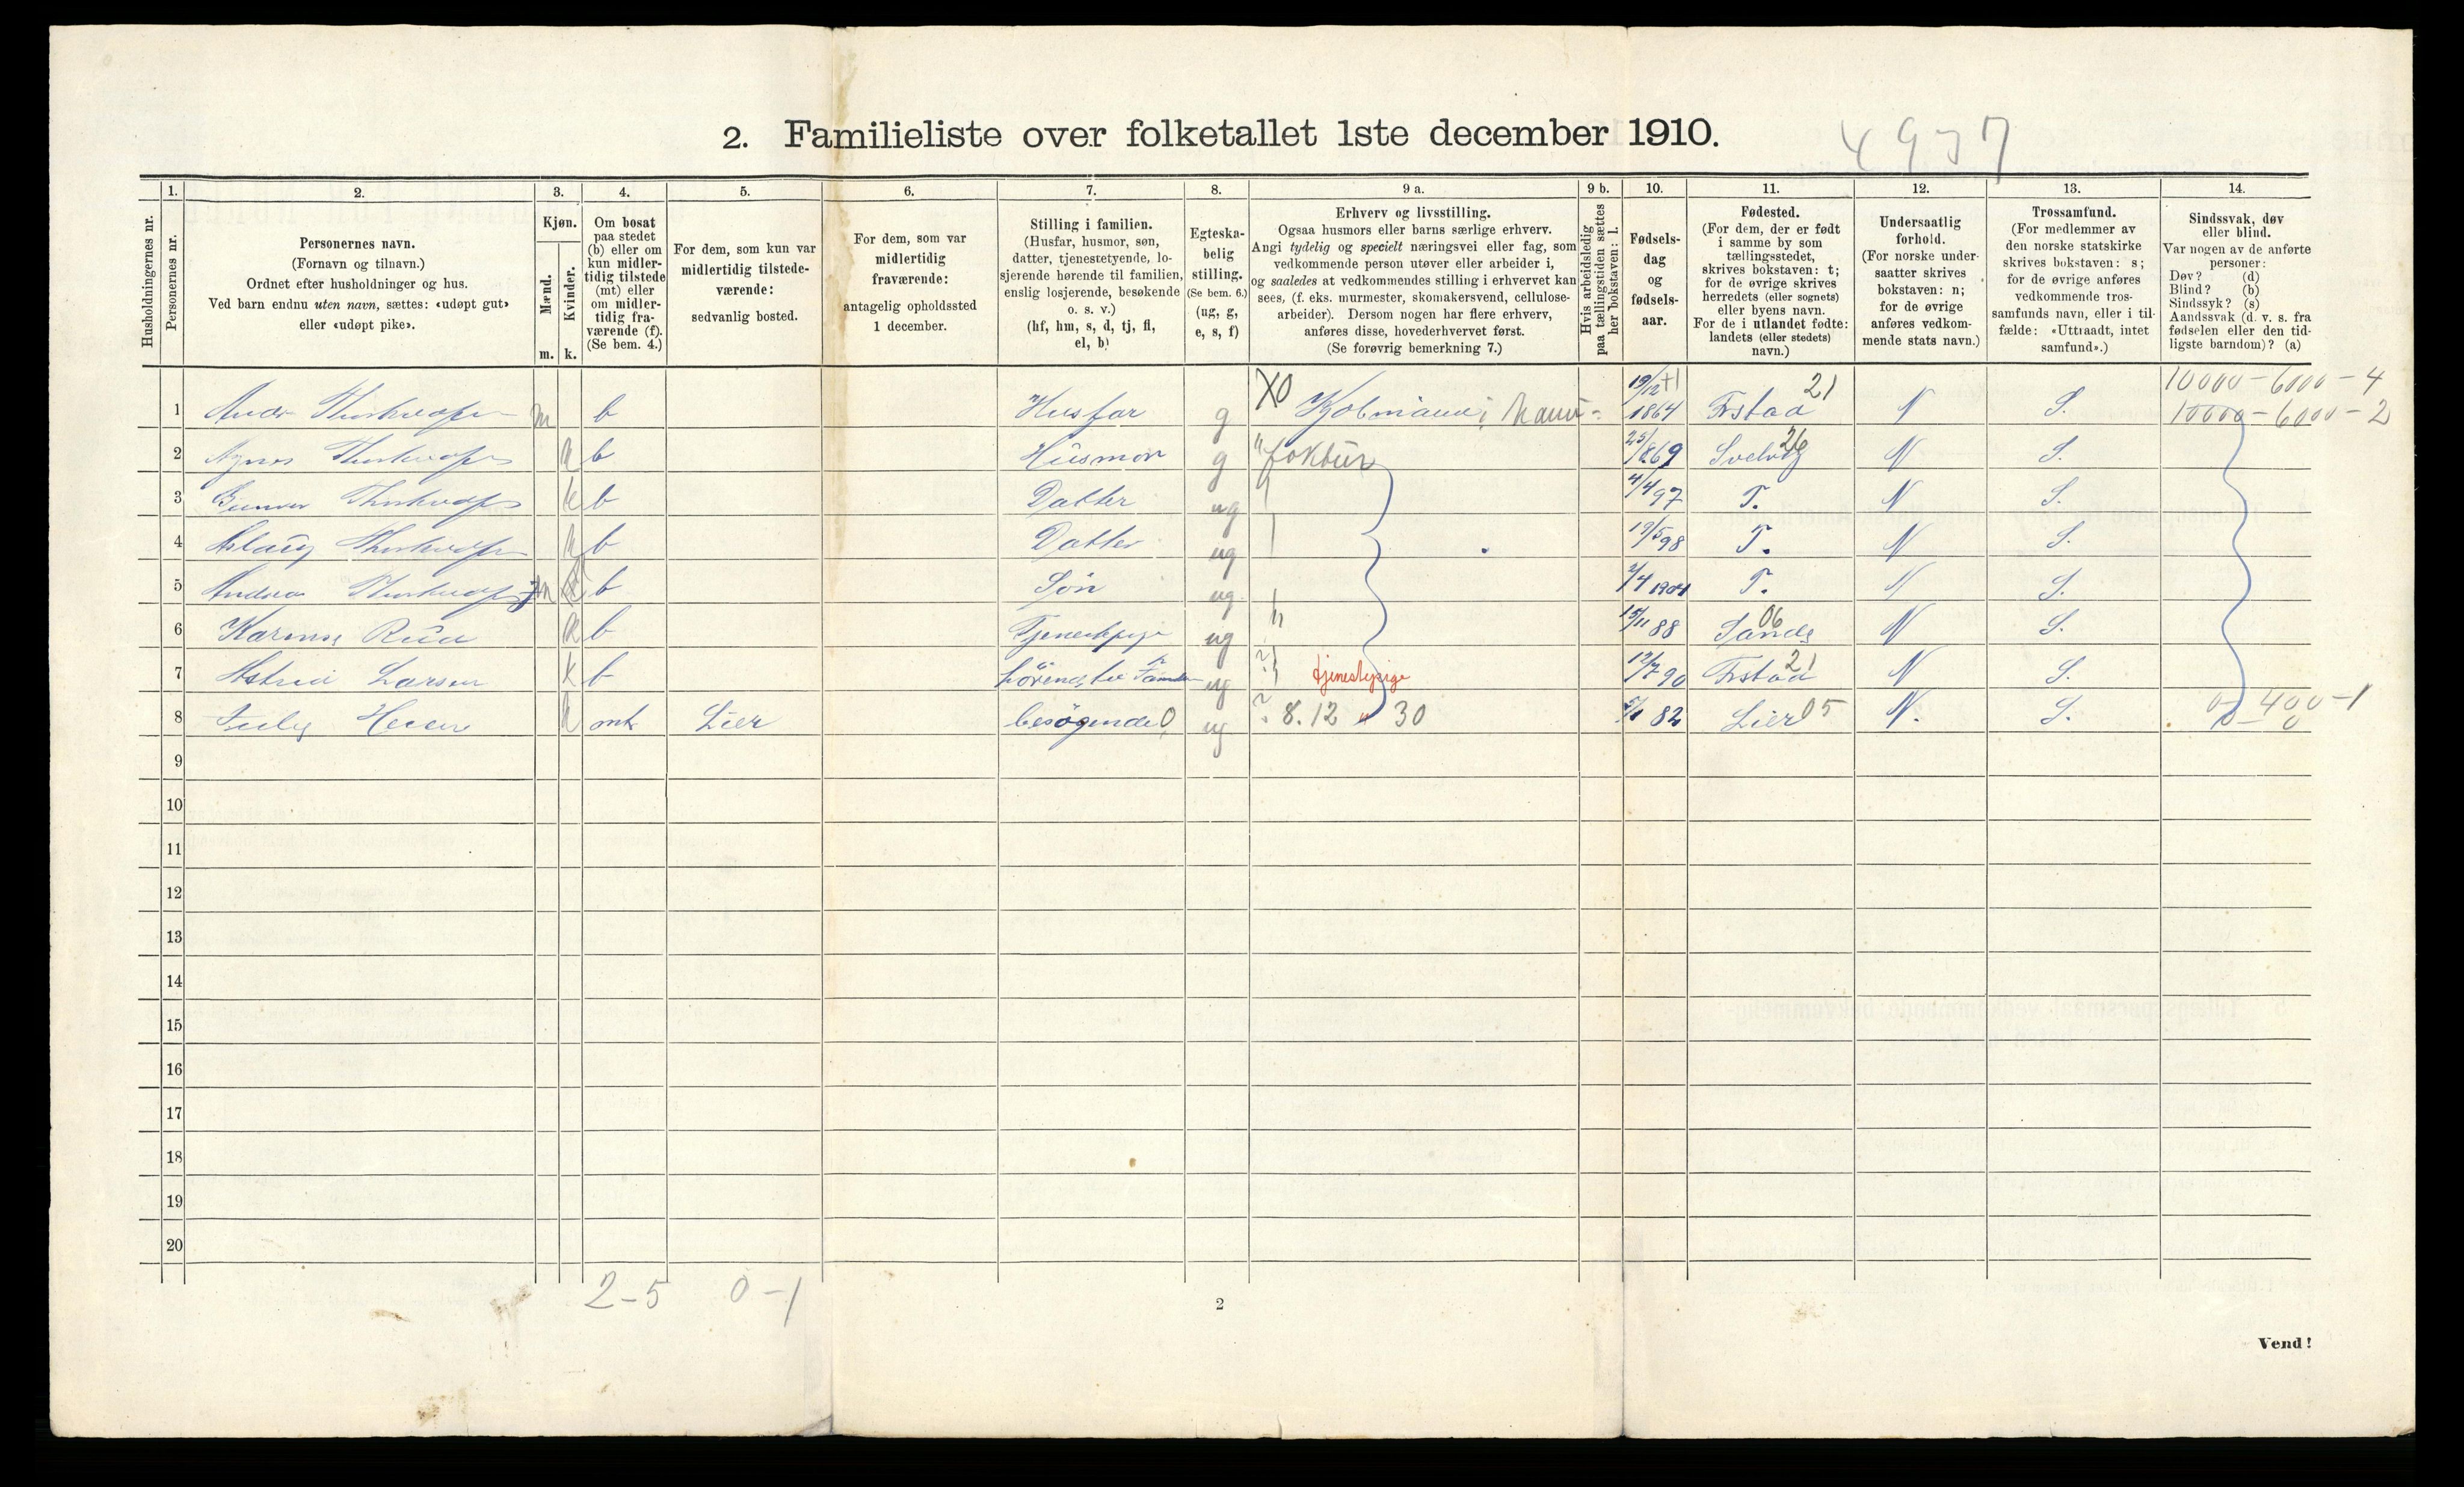 2. Familieliste over folketallet 1ste december 1910.
4937
Husholdningernes nr.
1. Personernes nr.
2. Personernes navn.
(Fornavn og tilnavn.)
Ordnet efter husholdninger og hus.
Ved barn endnu uten navn, sættes: «udøpt gut»
eller «udøpt pike».
3. Kjøn.
Mænd. m.
Kvinder. k.
4. Om bosat
paa stedet
(b) eller om
kun midler-
tidig tilstede
(mt) eller
om midler-
tidig fra-
værende (f).
(Se bem. 4.)
5. For dem, som kun var
midlertidig tilstede-
værende:
sedvanlig bosted.
6. For dem, som var
midlertidig
fraværende:
antagelig opholdssted
1 december.
7. Stilling i familien.
(Husfar, husmor, søn,
datter, tjenestetyende, lo-
sjerende hørende til familien,
enslig losjerende, besøkende
o. s. v.)
(hf, hm, s, d, tj, fl,
el, b)
8. Egteska-
belig
stilling.
(Se bem. 6.)
(ug, g,
e, s, f)
9 a. Erhverv og livsstilling.
Ogsaa husmors eller barns særlige erhverv.
Angi tydelig og specielt næringsvei eller fag, som
vedkommende person utøver eller arbeider i,
og saaledes at vedkommendes stilling i erhvervet kan
sees, (f. eks. murmester, skomakersvend, cellulose-
arbeider). Dersom nogen har flere erhverv,
anføres disse, hovederhvervet først.
(Se forøvrig bemerkning 7.)
9 b. Hvis arbeidsledig
paa tællingstiden sættes
her bokstaven: l.
10. Fødsels-
dag
og
fødsels-
aar.
11. Fødested.
(For dem, der er født
i samme by som
tællingsstedet,
skrives bokstaven: t;
for de øvrige skrives
herredets (eller sognets)
eller byens navn.
For de i utlandet fødte:
landets (eller stedets)
navn.)
12. Undersaatlig
forhold.
(For norske under-
saatter skrives
bokstaven: n;
for de øvrige
anføres vedkom-
mende stats navn.)
13. Trossamfund.
(For medlemmer av
den norske statskirke
skrives bokstaven: s;
for de øvrige anføres
vedkommende tros-
samfunds navn, eller i til-
fælde: «Uttraadt, intet
samfund».)
14. Sindssvak, døv
eller blind.
Var nogen av de anførte
personer:
Døv? (d)
Blind? (b)
Sindssyk? (s)
Aandssvak (d. v. s. fra
fødselen eller den tid-
ligste barndom)? (a)
10000 - 6000 - 4
1 m b Husfar g XO Kjøbmann i 19/12 1864 Frstad 21 N S. 10000 - 6000 - 2
2 Agnes k b Husmor g 1869 Svelvig 26 N S.
3 k b Datter ug 4/4 97 T. N S.
4 Aslaug k b Datter ug 19/5 98 T. N S.
5 m b Søn ug 2/4 1901 T. N S.
6 Rud k b Tjenestepige ug 15/11 88 Sande 06 N S.
7 Astrid Larsen k b hörende til Familien ug tjenestepige 12/7 90 Frstad 21 N S.
8 k mt Lier besögende ug 8.12 " 30 82 Lier 05 N. S. 0 - 400 - 1
9
10
11
12
13
14
15
16
17
18
19
20
2-5 0-1
2
Vend!